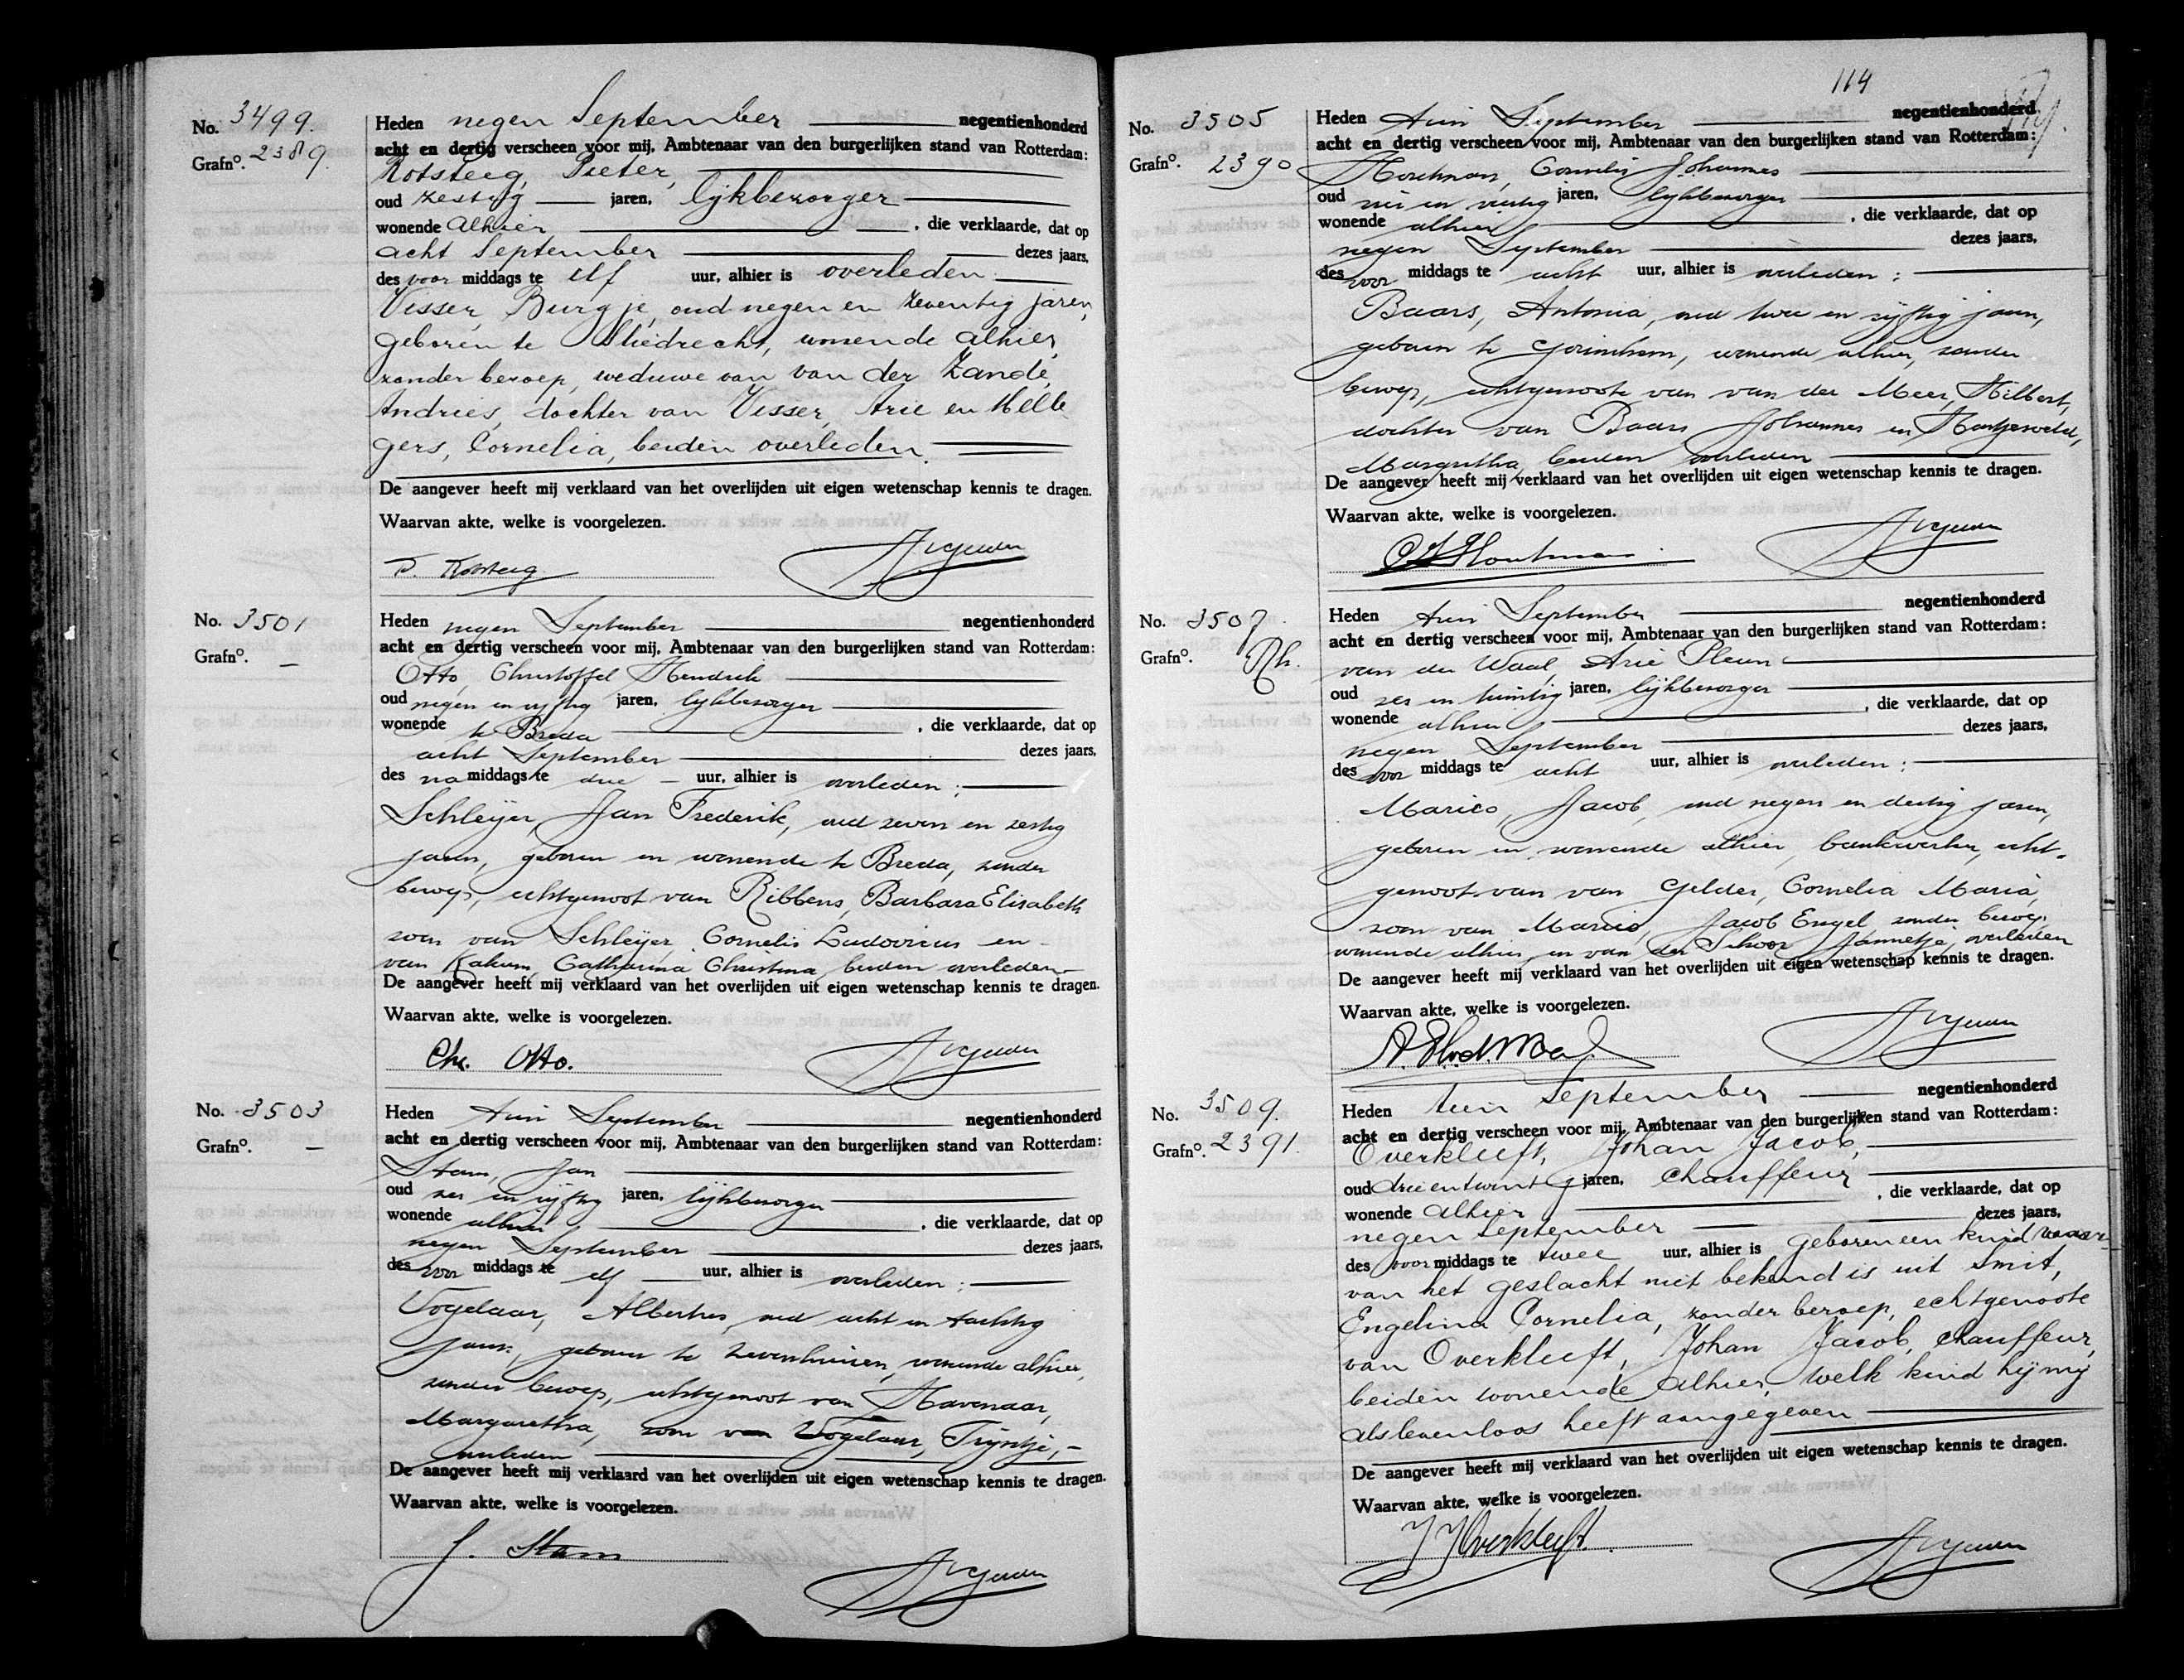 No. 3499.
Grafno. 2389.
Heden negen September negentienhonderd
acht en dertig verscheen voor mij, Ambtenaar van den burgerlijken stand van Rotterdam:
Rotsteeg, Pieter,
oud zestig jaren, lijkbezorger
wonende alhier, die verklaarde, dat op
acht September dezes jaars,
des voor middags te elf uur, alhier is overleden:
Visser, Burgje, oud negen en zeventig jaren,
geboren te Sliedrecht, wonende alhier,
zonder beroep, weduwe van van der Zande,
Andries, dochter van Visser, Arie en Hille
gers, Cornelia, beiden overleden.
De aangever heeft mij verklaard van het overlijden uit eigen wetenschap kennis te dragen.
Waarvan akte, welke is voorgelezen.
P. Rotsteeg
No. 3501
Grafno. –
Heden negen September negentienhonderd
acht en dertig verscheen voor mij, Ambtenaar van den burgerlijken stand van Rotterdam:
Otto, Christoffel Hendrik
oud negen en vijftig jaren, lijkbezorger
wonende te Breda, die verklaarde, dat op
acht September dezes jaars,
des na middags te drie uur, alhier is overleden:
Schleijer, Jan Frederik, oud zeven en zestig
jaren, geboren en wonende te Breda, zonder
beroep, echtgenoot van Ribbens, Barbara Elisabeth
zoon van Schleijer, Cornelis Ludovicus en
van Kakum, Catharina Christina, beiden overleden
De aangever heeft mij verklaard van het overlijden uit eigen wetenschap kennis te dragen.
Waarvan akte, welke is voorgelezen.
Chr. Otto.
No. 3503
Grafno. –
Heden tien September negentienhonderd
acht en dertig verscheen voor mij, Ambtenaar van den burgerlijken stand van Rotterdam:
Stam, Jan
oud zes en vijftig jaren, lijkbezorger
wonende alhier, die verklaarde, dat op
negen September dezes jaars,
des voor middags te elf uur, alhier is overleden:
Vogelaar, Albertus, oud acht en tachtig
jaren, geboren te Zevenhuizen, wonende alhier,
zonder beroep, echtgenoot van Havenaar,
Margaretha, zoon van Vogelaar, Trijntje,
overleden
De aangever heeft mij verklaard van het overlijden uit eigen wetenschap kennis te dragen.
Waarvan akte, welke is voorgelezen.
J. Stam
114
No. 3505
Grafno. 2390
Heden tien September negentienhonderd
acht en dertig verscheen voor mij, Ambtenaar van den burgerlijken stand van Rotterdam:
Houtman, Cornelis Johannes
oud en veertig jaren, lijkbezorger
wonende alhier, die verklaarde, dat op
negen September dezes jaars,
des voor middags te acht uur, alhier is overleden:
Baars, Antonia, oud twee en vijftig jaren,
geboren te Gorinchem, wonende alhier, zonder
beroep, echtgenoote van van der Meer, Hilbert,
dochter van Baars Johannes en
Margretha, beiden overleden
De aangever heeft mij verklaard van het overlijden uit eigen wetenschap kennis te dragen.
Waarvan akte, welke is voorgelezen.
CJHoutman
No. 3507
Grafno. Rh.
Heden tien September negentienhonderd
acht en dertig verscheen voor mij, Ambtenaar van den burgerlijken stand van Rotterdam:
van der Waal, Arie Pleun
oud zes en twintig jaren, lijkbezorger
wonende alhier, die verklaarde, dat op
negen September dezes jaars,
des voor middags te acht uur, alhier is overleden:
Marico, Jacob, oud negen en dertig jaren,
geboren en wonende alhier, bankwerker, echt-
genoot van van Gelder, Cornelia Maria,
zoon van Marico, Jacob Engel, zonder beroep,
wonende alhier, en van der Schoor, Jannetje, overleden
De aangever heeft mij verklaard van het overlijden uit eigen wetenschap kennis te dragen.
Waarvan akte, welke is voorgelezen.
A.P.v.d.Waal.
No. 3509.
Grafno. 2391.
Heden tien September negentienhonderd
acht en dertig verscheen voor mij, Ambtenaar van den burgerlijken stand van Rotterdam:
Overkleeft, Johan Jacob,
oud drieentwintig jaren, chauffeur
wonende alhier, die verklaarde, dat op
negen September dezes jaars,
des voor middags te twee uur, alhier is geboren een kind waar-
van het geslacht niet bekend is uit Smit,
Engelina Cornelia, zonder beroep, echtgenoote
van Overkleeft, Johan Jacob, chauffeur,
beiden wonende alhier, welk kind hij mij
als levenloos heeft aangegeven
De aangever heeft mij verklaard van het overlijden uit eigen wetenschap kennis te dragen.
Waarvan akte, welke is voorgelezen.
JJOverkleeft.